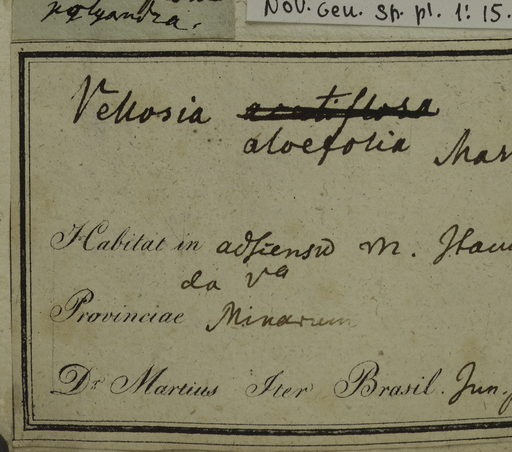 polyandra.
Nov. Gen. Sp. pl. 1: 15.
Vellosia acutiflora
aloefolia Mar
Habitat in adscensu m. Itam
da Va
Provinciae Minarum
Dr. Martius Iter Brasil. Jun.